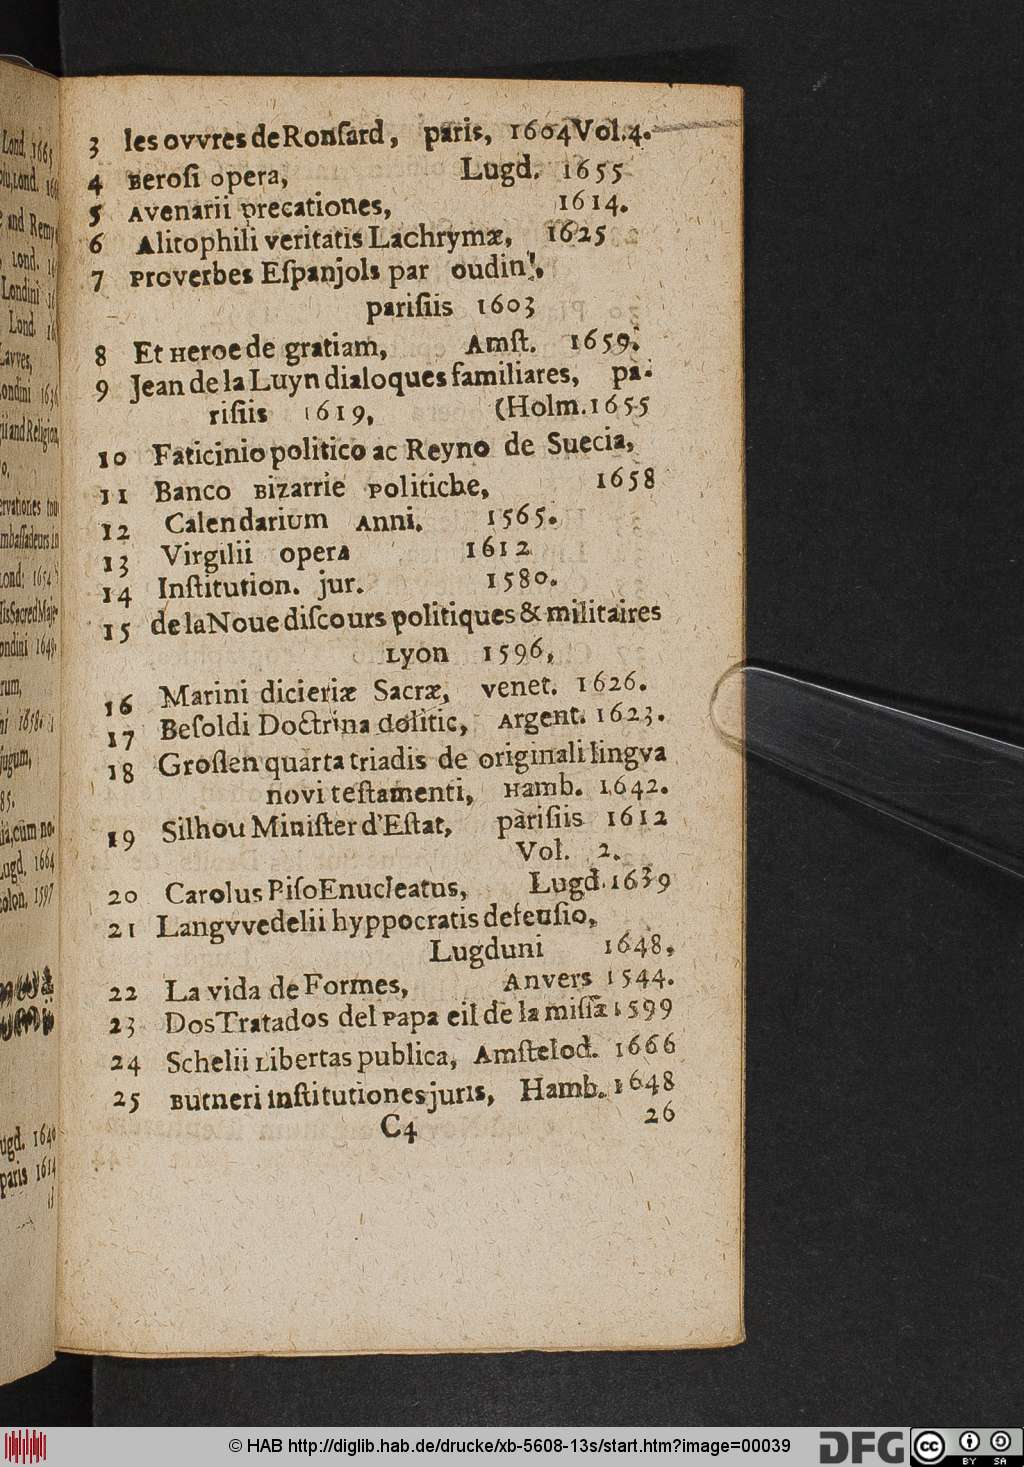 3 les ovvres de Ronſard, paris, 1604 Vol. 4.
4 Beroſi opera, Lugd. 1655
5 Avenarii precationes, 1614.
6 Alitophili veritatis Lachrymæ, 1625
7 Proverbes Eſpanjols par oudin',
pariſiis 1603
8 Et Heroe de gratiam, Amſt. 1659.
9 Jean de la Luyn dialoques familiares, pa-
riſiis 1619, (Holm. 1655
10 Faticinio politico ac Reyno de Suecia,
11 Banco Bizarrie Politiche, 1658
12 Calendarium Anni. 1565.
13 Virgilii opera 1612
14 Inſtitution. jur. 1580.
15 de la Noue diſcours politiques & militaires
Lyon 1596,
16 Marini dicieriæ Sacræ, venet. 1626.
17 Beſoldi Doctrina dolitic, Argent. 1623.
18 Groſſen quarta triadis de originali lingva
novi teſtamenti, Hamb. 1642.
19 Silhou Miniſter d'Eſtat, pariſiis 1612
Vol. 2.
20 Carolus Piſo Enucleatus, Lugd. 1639
21 Langvvedelii hyppocratis defeuſio,
Lugduni 1648,
22 La vida de Formes, Anvers 1544.
23 Dos Tratados del Papa eil de la miſſa 1599
24 Schelii Libertas publica, Amſtelod. 1666
25 Butneri inſtitutiones juris, Hamb. 1648
C4 26
© HAB http://diglib.hab.de/drucke/xb-5608-13s/start.htm?image=00039
DFG
cc BY SA